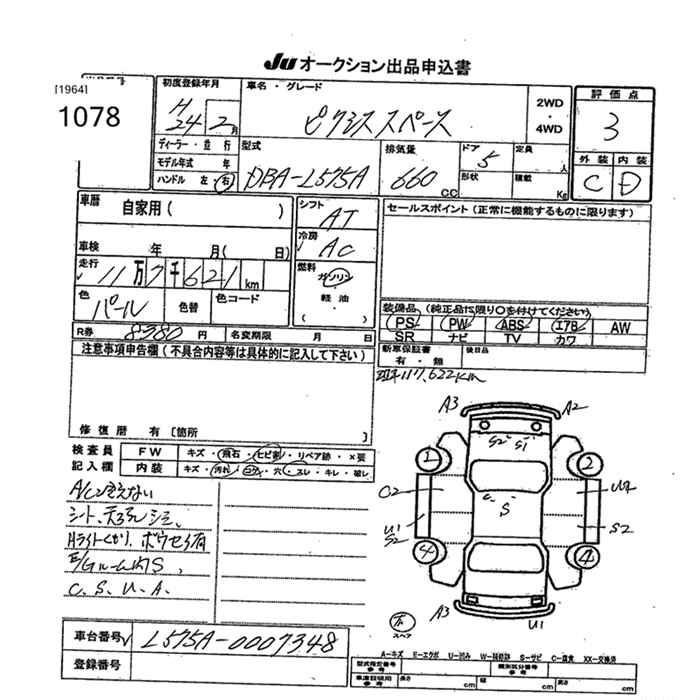 Ju オークション出品申込書
[1964]
1078
初度登録年月
H 24 2月
車名・グレード
ピクシススペース
2WD
・
4WD
評価点
3
外装 内装
C D
ディーラー・並行
モデル年式 年
ハンドル 左・右
型式
DBA-L575A
排気量
660 CC
ドア
5
形状
定員
人
積載
Kg
車歴 自家用( )
車検 年 月( 日)
走行
11万7千621 km
色
パール
色替
色コード
シフト
AT
冷房
AC
燃料
ガソリン
・
軽油
・
セールスポイント (正常に機能するものに限ります)
装備品 (純正品に限り○を付けてください)
PS PW ABS エアB AW
SR ナビ TV カワ
新車保証書 後日品
有・無
R券 8380円 名変期限 月 日
注意事項申告欄 (不具合内容等は具体的に記入して下さい)
修復歴 有 [箇所 ]
現車117,622km
検査員 FW キズ・飛石・ヒビ割・リペア跡・×要
記入欄 内装 キズ・汚れ・コゲ・穴・スレ・キレ・破レ
A/C
シート、天
Hライトくもり、
E/Gルーム内S、
C、S、U、A、
A3 A2
S2 S1
1 2
C2 U2
S
U1
S2
S2
4 4
A3 U1
スペア
車台番号 L575A-0007348
登録番号
A-キズ E-エクボ U-凹み W-補修跡 S-サビ C-腐食 XX-交換済
型式指定番号
参考
類別区分番号
参考
車庫証明用
参考
長さ cm 幅 cm 高さ cm